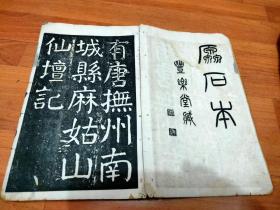 石本
豐樂堂藏
有唐撫州南
城縣麻姑山
仙壇記